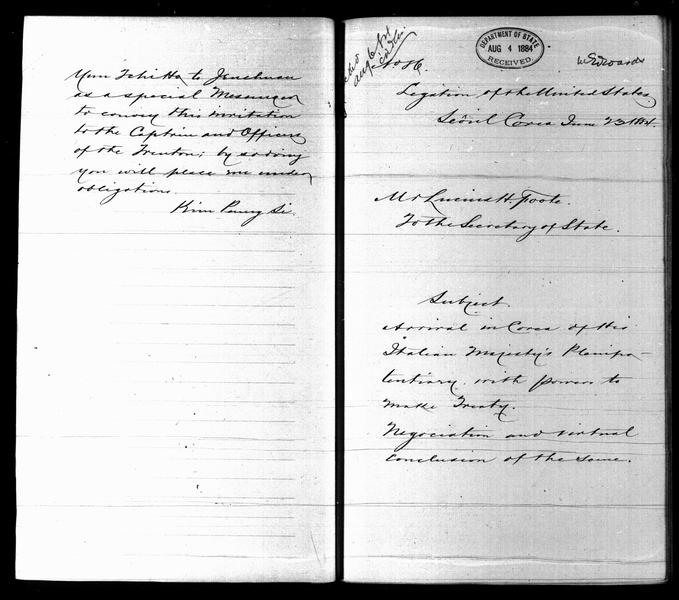 Yun Tchi Ho to Jenchuan
as a special Messenger
to convey this invitation
to the Captain and Officers
of the Trenton; by so doing
you will place me under
obligations.
Kim Pung Si.
Aug 6/84
DEPARTMENT OF STATE
AUG 4 1884
RECEIVED
Legation of the United States,
Seöul Corea June 23 1884.
Mr Lucius H. Foote.
To the Secretary of State.
Subject.
Arrival in Corea of His
Italian Majesty's Plenipo-
tentiary, with powers to
make Treaty.
Negociation and virtual
conclusion of the same.